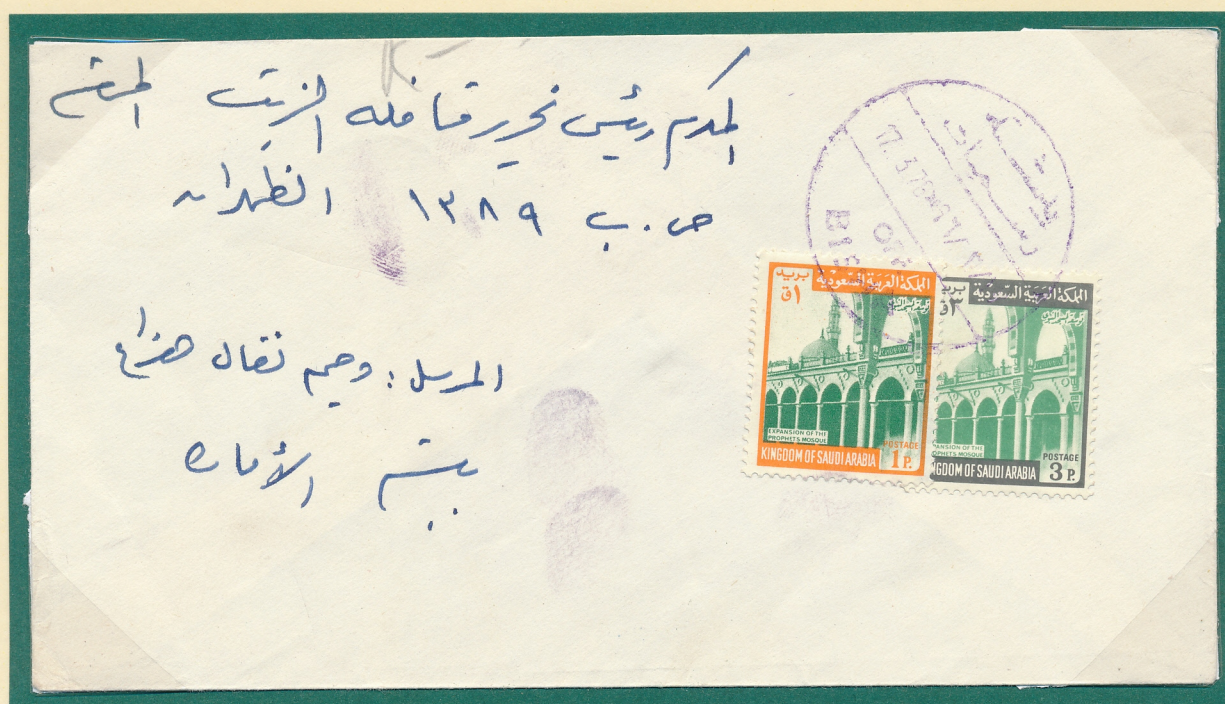 المكرم رئيس تحرير قافله الزيت المحترم
ص. ب ١٣٨٩ الظهران
المرسل: وحيم نقال هزاع
بيشه الأماره
17.3.78
BIS
المملكة العربية السعودية
بريد
١ق
EXPANSION OF THE
PROPHETS MOSQUE
POSTAGE
KINGDOM OF SAUDI ARABIA 1 P.
المملكة العربية السعودية
بريد
٣ق
PANSION OF THE
OPHETS MOSQUE
POSTAGE
NGDOM OF SAUDI ARABIA 3 P.